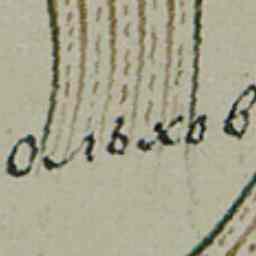 ольхов